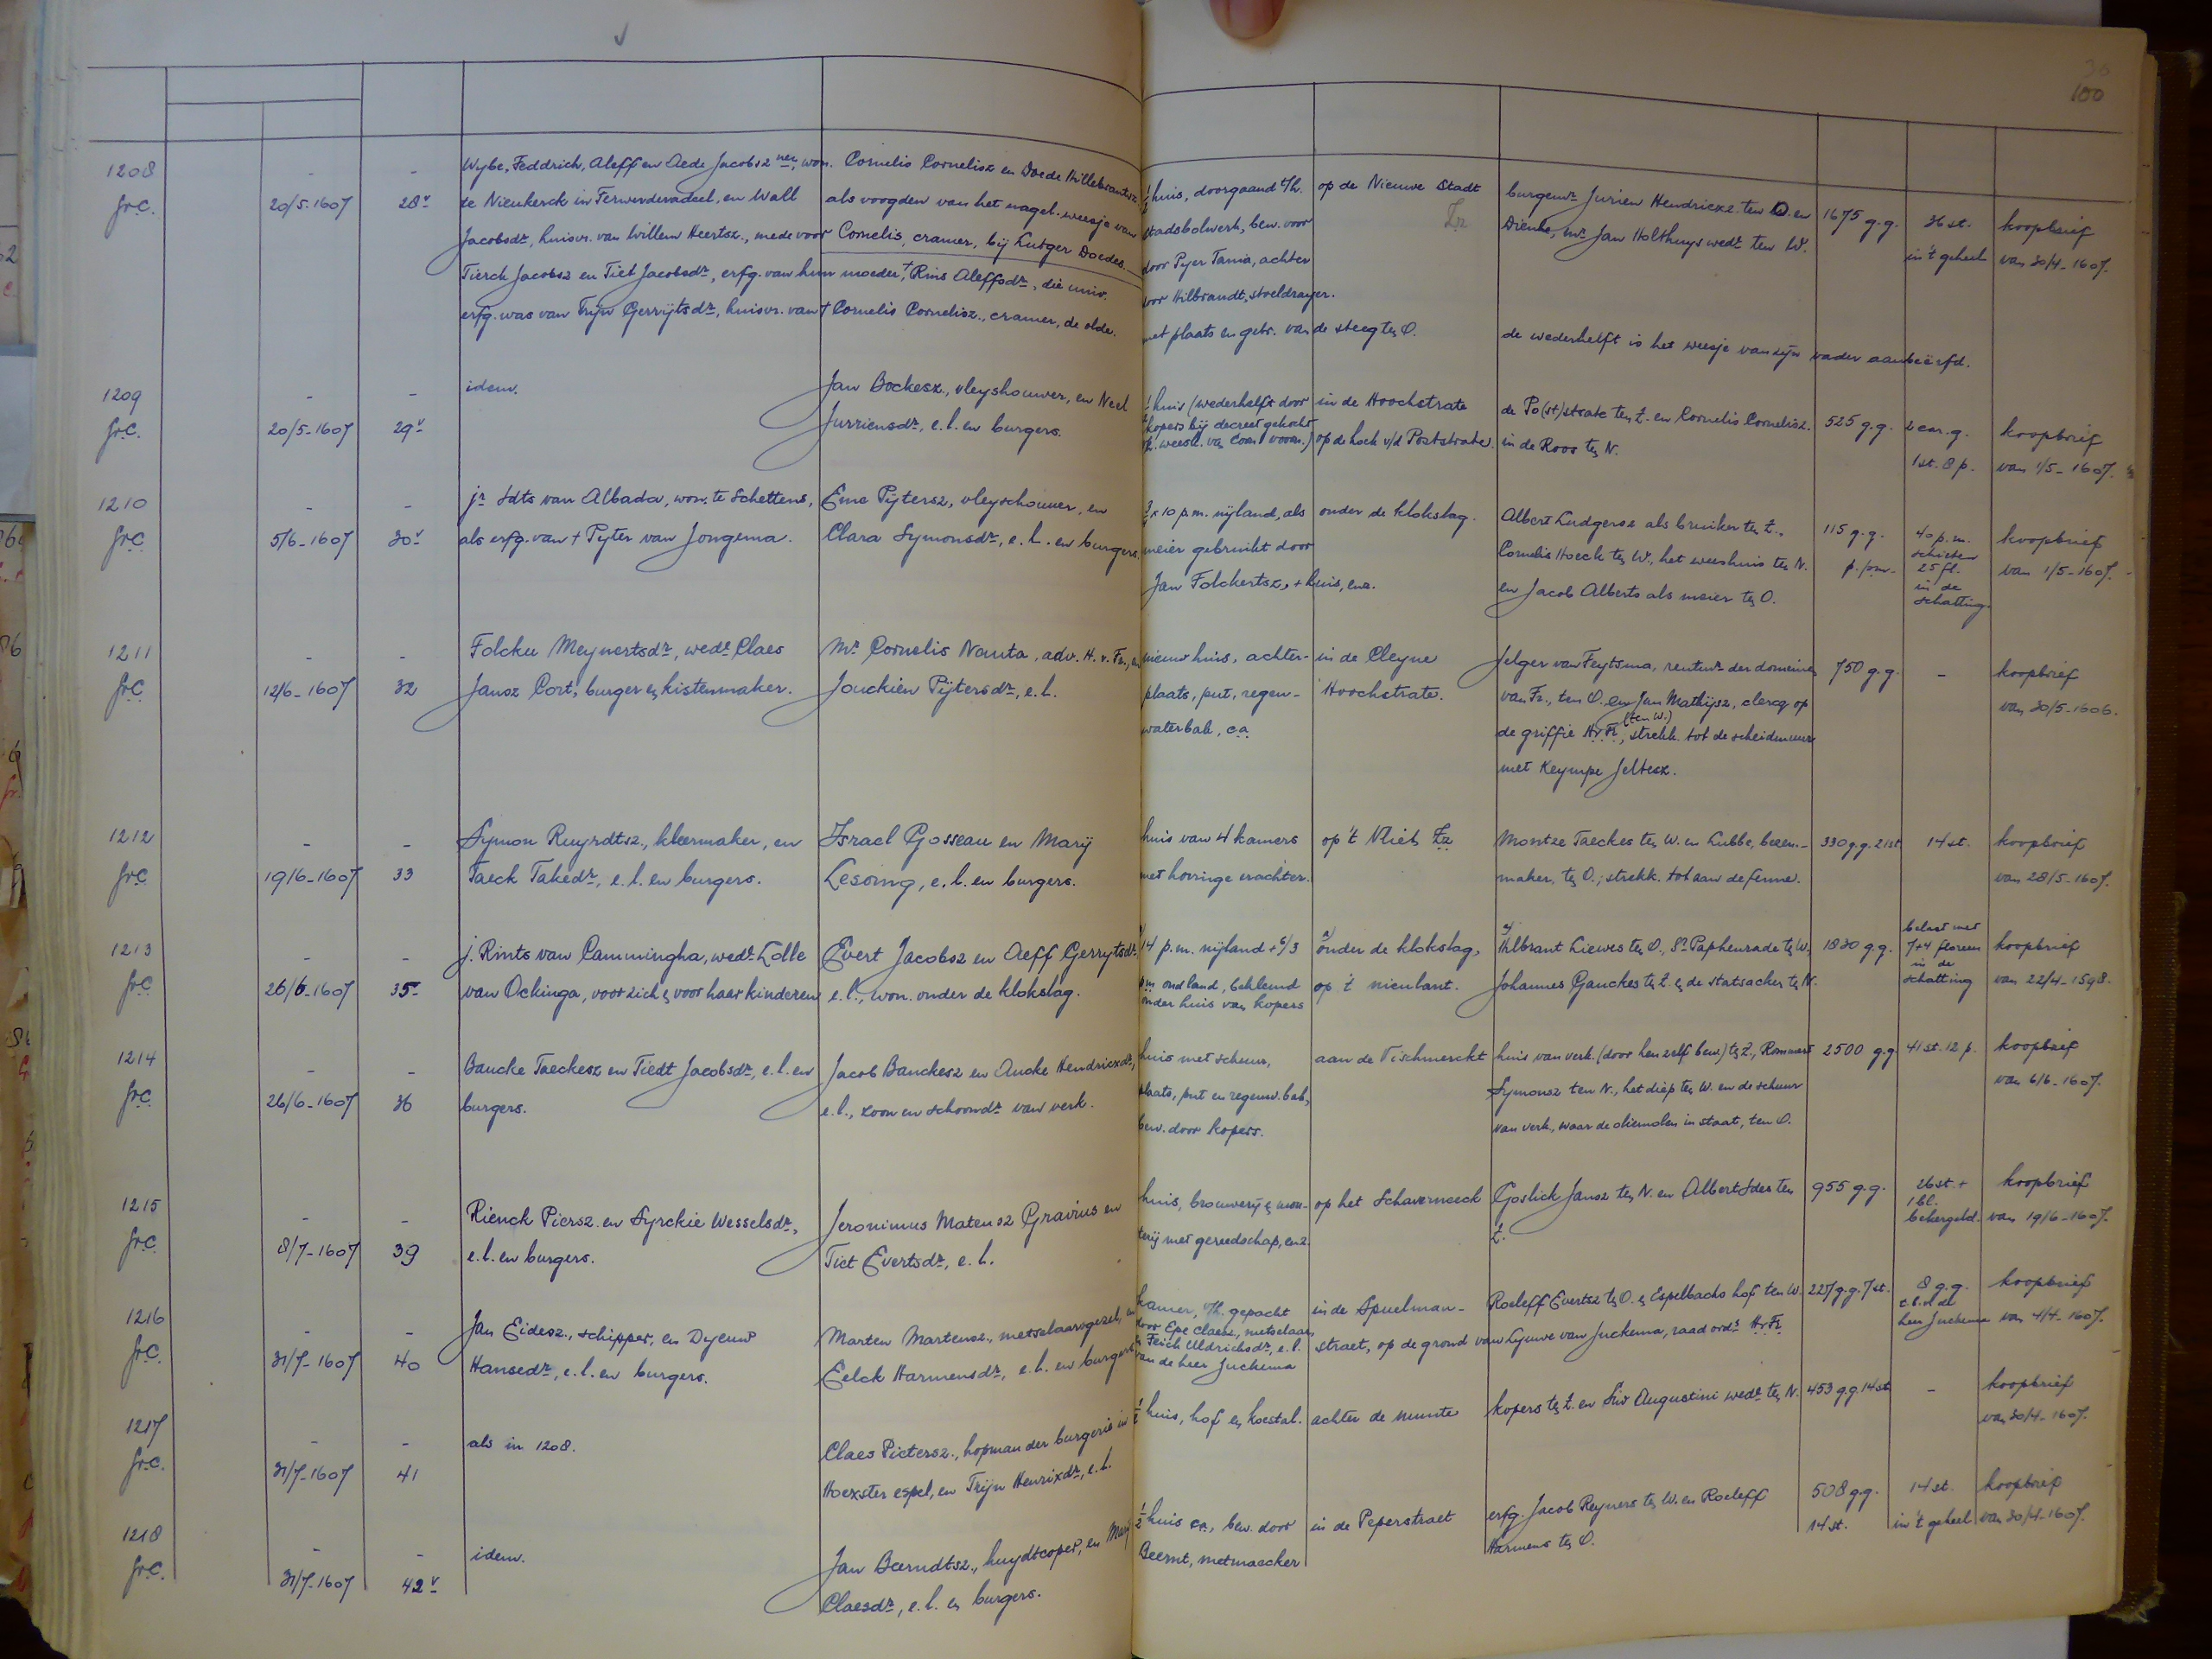 36
100
1208
fr.c.
- 20/5-1607
- 28v
Wybe, Feddrick, Aleff en Aede Jacobsz nen, won.
te Nieukerck in Ferwerderadeel, en Wall
Jacobsdr, huisvr. van Willem Heertsz., mede voor
Tierck Jacobsz en Tiet Jacobsdr, erfg. van hun moeder, † Rins Aleffsdr, die univ.
erfg. was van Trijn Gerrijtsdr, huisvr. van † Cornelis Cornelisz., cramer, de olde.
Cornelis Cornelisz en Doede Hillebrantsz
als voogden van het nagel. weesje van
Cornelis, cramer, bij Lutger Doedes.
½ huis, doorgaand t/h.
stadsbolwerk, bew. voor
door Pyer Tania, achter
door Hilbrandt, stoeldrayer.
met plaats en gebr. van de steeg ten O.
op de Nieuwe Stadt
Zz
burgemr Jurien Hendricxz. ten O. en
Dieuke, mr Jan Holthuys wedr ten W.
de wederhelft is het weesje van zijn vader aanbeërfd.
1675 g.g.
36 st.
in 't geheel
koopbrief
van 30/4-1607.
1209
fr.c.
- 20/5-1607
- 29v
idem.
Jan Bockesz., vleyshouwer, en Neel
Jurriensdr, e.l. en burgers.
½ huis (wederhelft door
kopers bij decreet gekocht
t. weesk. van Corn. voorn.)
in de Hoochstrate
op de hoek v/d Poststrate.
de Po(st)strate ten Z. en Cornelis Cornelisz.
in de Roos ten N.
525 g.g.
2 car. g.
1 st. 8 p.
koopbrief
van 1/5-1607.
1210
fr.c.
- 5/6-1607
- 30v
jr Idts van Albada, won. te Schettens,
als erfg. van † Pijter van Jongema.
Eme Pijtersz, vleyschouwer, en
Clara Symonsdr, e.l. en burgers.
x 10 p.m. nijland, als
meier gebruikt door
Jan Folckertsz, + huis, enz.
onder de klokslag.
Albert Ludgersz als bruiker ten Z.,
Cornelis Hoeck ten W., het weeshuis ten N.
en Jacob Alberts als meier ten O.
115 g.g.
p. pm.
40 p.m.
schieten
25 fl.
in de
schatting.
koopbrief
van 1/5-1607.
1211
fr.c.
- 12/6-1607
- 32
Folcku Meynertsdr, wedr Claes
Jansz Cort, burger en kistenmaker.
Mr Cornelis Nauta, adv. H. v. Fr., en
Jouckien Pijtersdr, e.l.
nieuw huis, achter-
plaats, put, regen-
waterbak, c.a.
in de Cleyne
Hoochstrate.
Jelger van Feytsma, rentmr der domeinen
van Fr., ten O. en Jan Mathijsz, clercq op
(ten W.)
de griffie HvFr, strekk. tot de scheidmuur
met Keympe Jeltesz.
750 g.g.
-
koopbrief
van 30/5-1606.
1212
fr.c.
- 19/6-1607
- 33
Symon Ruyrdtsz., kleermaker, en
Taeck Takedr, e.l. en burgers.
Israel Gosseau en Marij
Lesoing, e.l. en burgers.
huis van 4 kamers
met hovinge erachter.
op 't Vliet Zz
Montze Taeckes ten W. en Lubbe, beem-
maker, ten O.; strekk. tot aan de ferme.
330 g.g. 21 st
14 st.
koopbrief
van 28/5-1607.
1213
fr.c.
- 26/6-1607
- 35
j. Rints van Cammingha, wedr Lolle
van Ockinga, voor zich en voor haar kinderen
Evert Jacobsz en Aeff Gerrytsdr
e.l., won. onder de klokslag.
14 p.m. nijland + 6/3
pm oud land, beklemd
onder huis van kopers
onder de klokslag,
op 't nieulant.
Hilbrant Liewes ten O., Sr Paphenrade ten W,
Johannes Gauckes ten Z. en de statsacker ten N.
1830 g.g.
belast met
7+4 floreen
in de
schatting
koopbrief
van 22/4-1598.
1214
fr.c.
- 26/6-1607
- 36
Baucke Taeckesz en Tiedt Jacobsdr, e.l. en
burgers.
Jacob Banckesz en Aucke Hendricxdr,
e.l., zoon en schoondr van verk.
huis met schuur,
plaats, put en regenw. bak,
bew. door kopers.
aan de Vischmerckt
huis van verk. (door hen zelf bew.) ten Z., Rommert
Symonsz ten N., het diep ten W. en de schuur
van verk., waar de oliemolen in staat, ten O.
2500 g.g.
41 st. 12 p.
koopbrief
van 6/6-1607.
1215
fr.c.
- 8/7-1607
- 39
Rienck Piersz. en Syrckie Wesselsdr,
e.l. en burgers.
Jeronimus Matensz Gravius en
Tiet Evertsdr, e.l.
huis, brouwerij en mou-
terij met gereedschap, enz.
op het Schaverneeck
Goslick Jansz ten N. en Albert Ides ten
Z.
955 g.g.
26 st. +
1 bl.
bekergeld.
koopbrief
van 19/6-1607.
1216
fr.c.
- 31/7-1607
- 40
Jan Eidesz., schipper, en Dyeuw
Hansedr, e.l. en burgers.
Marten Martensz., metselaarsgezel, en
Eelck Harmensdr, e.l. en burgers
kamer, t/h. gepacht
door Epe Claesz, metselaar,
en Teich Uldrichsdr, e.l.
van de heer Juckema
in de Spuelman-
straet, op de grond van Lyuwe van Juckema, raad ords HvFr
Roeleff Evertsz ten O. en Espelbachs hof ten W.
227 g.g. 7 st.
8 g.g.
t.b.v. de
heer Juckema
koopbrief
van 4/4-1607.
1217
fr.c.
- 31/7-1607
- 41
als in 1208.
Claes Pietersz., hopman der burgerie in
Hoexster espel, en Trijn Henrixdr, e.l.
½ huis, hof en koestal.
achter de munte
kopers ten Z. en Siv Augustini wedr ten N.
453 g.g. 14 st
-
koopbrief
van 30/4-1607.
1218
fr.c.
- 31/7-1607
- 42v
idem.
Jan Barndtsz., huydtcoper, en Marij
Claesdr, e.l. en burgers.
½ huis ca., bew. door
Beernt, metmaecker
in de Peperstraet
erfg. Jacob Reyners ten W. en Roeleff
Harmens ten O.
508 g.g.
14 st.
14 st.
in 't geheel
koopbrief
van 30/4-1607.